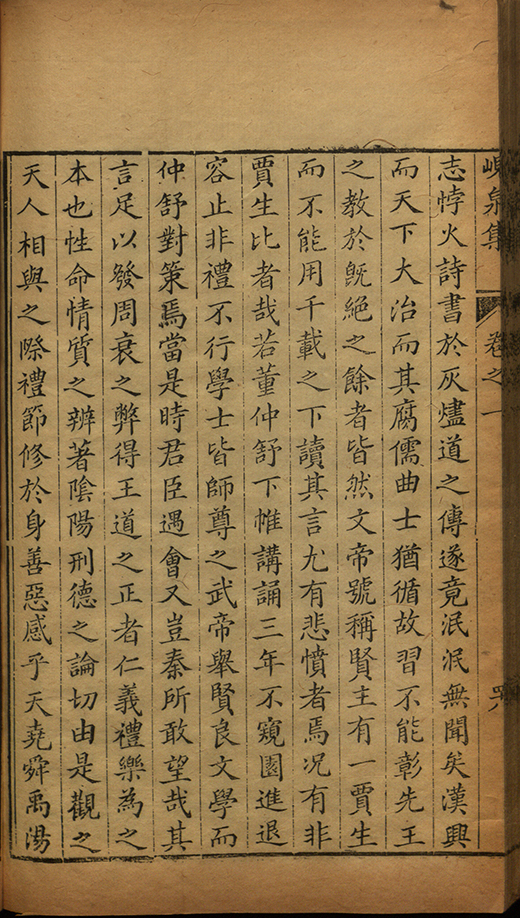 峴泉集 卷之一
志悖火詩書於灰燼道之傳遂竟泯泯無聞矣漢興
而天下大治而其腐儒曲士猶循故習不能彰先王
之教於旣絶之餘者皆然文帝號稱賢主有一賈生
而不能用千載之下讀其言尤有悲憤者焉况有非
賈生比者哉若董仲舒下帷講誦三年不窺園進退
容止非禮不行學士皆師尊之武帝舉賢良文學而
仲舒對策焉當是時君臣遇會又豈秦所敢望哉其
言足以發周衰之弊得王道之正者仁義禮樂為之
本也性命情質之辨著陰陽刑德之論切由是觀之
天人相與之際禮節修於身善惡感乎天堯舜禹湯